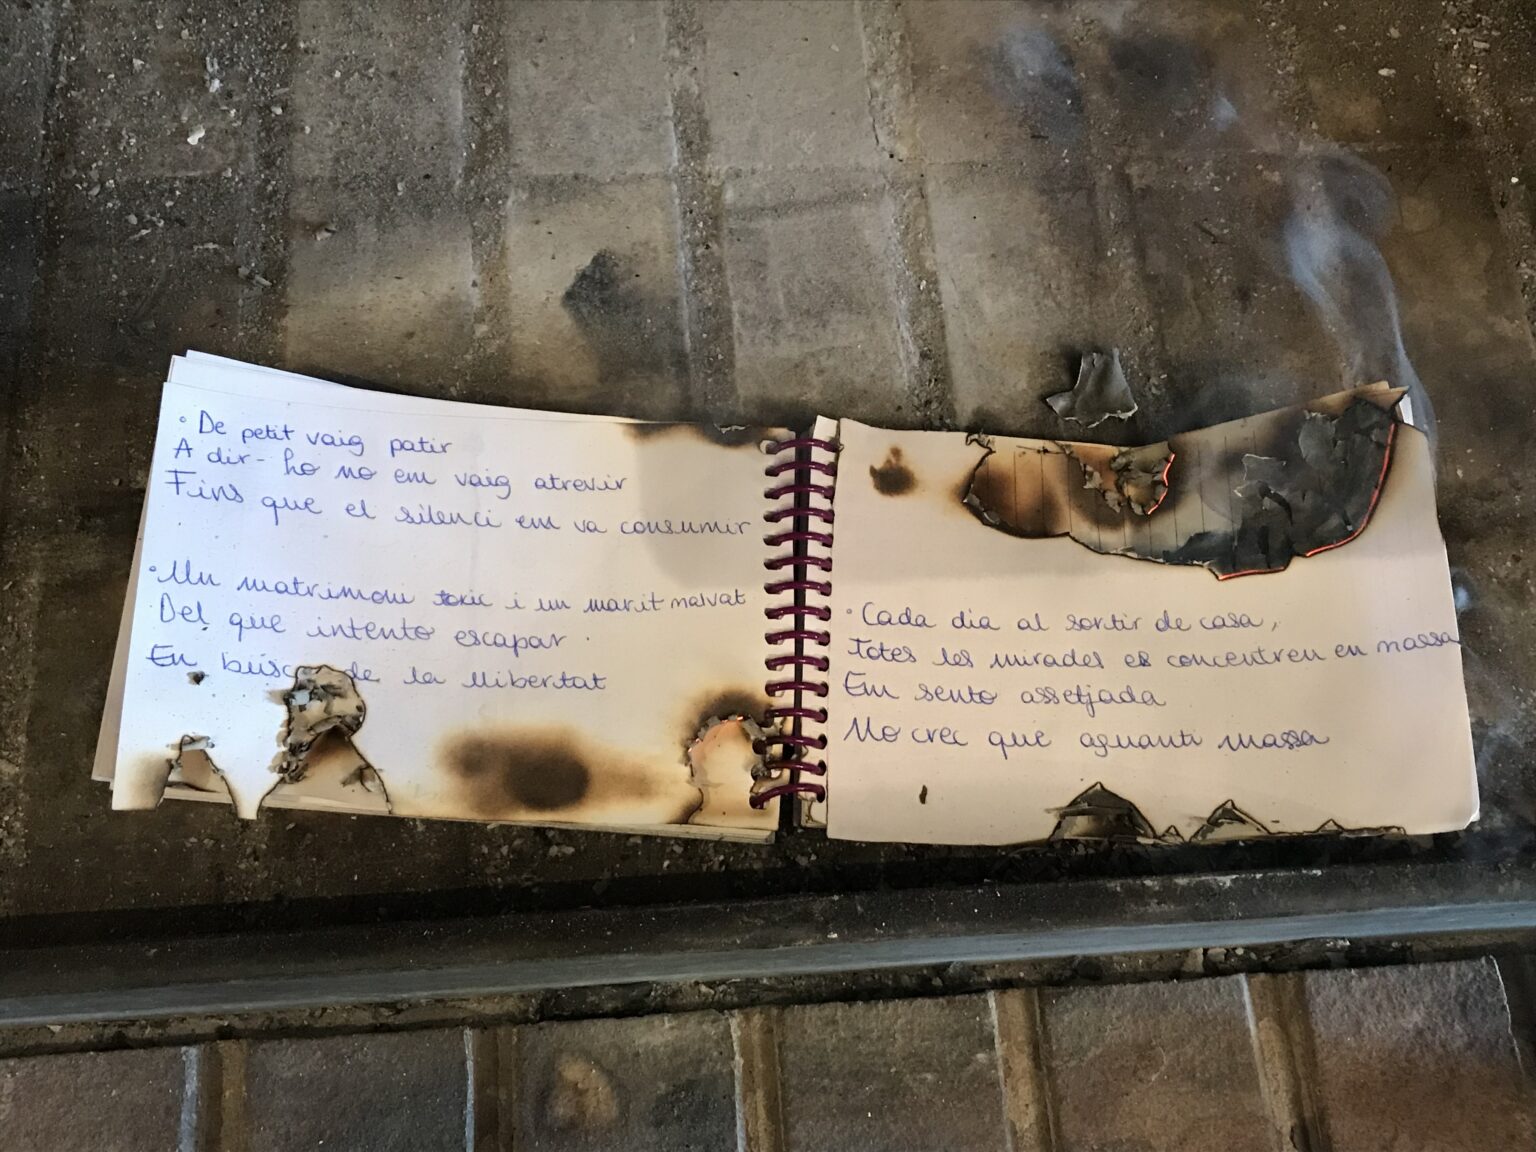 • De petit vaig patir
A dir-ho no em vaig atrevir
Fins que el silenci em va consumir
• Un matrimoni toxic i un marit malvat
Del que intento escapar
En busca de la llibertat
• Cada dia al sortir de casa,
Totes les mirades es concentren en massa
Em sento assetjada
No crec que aguanti massa